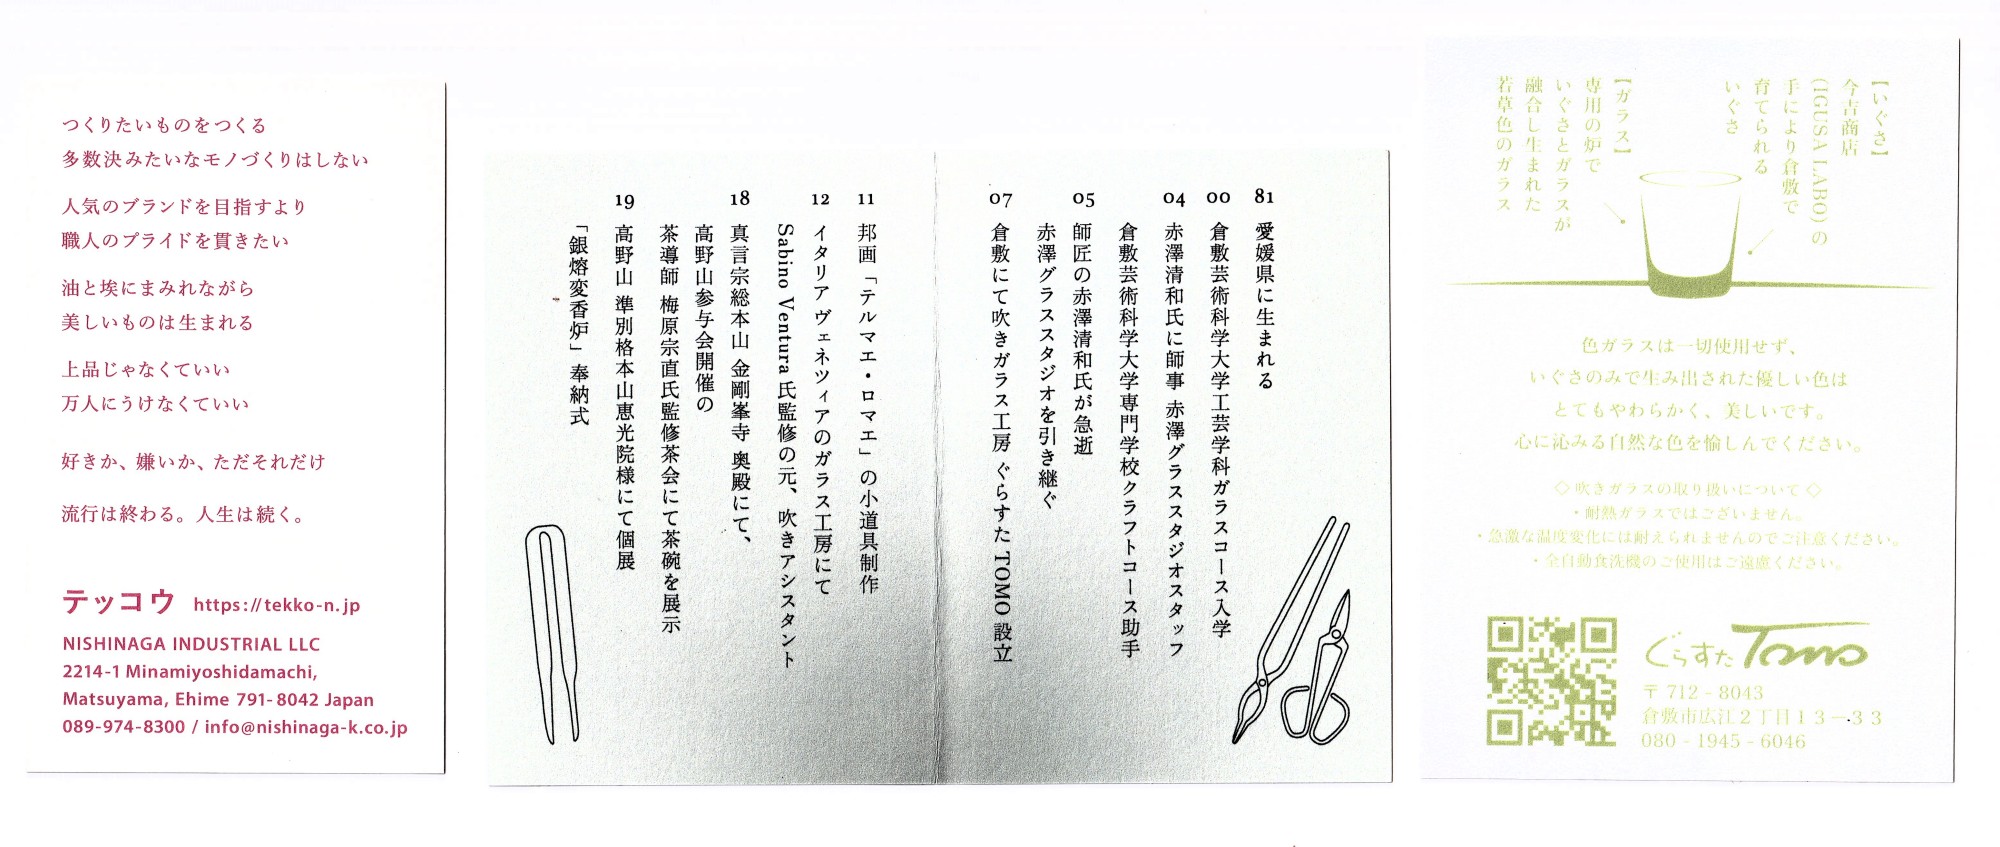 つくりたいものをつくる
多数決みたいなモノづくりはしない
人気のブランドを目指すより
職人のプライドを貫きたい
油と埃にまみれながら
美しいものは生まれる
上品じゃなくていい
万人にうけなくていい
好きか、嫌いか、ただそれだけ
流行は終わる。人生は続く。
テッコウ https://tekko-n.jp
NISHINAGA INDUSTRIAL LLC
2214-1 Minamiyoshidamachi,
Matsuyama, Ehime 791-8042 Japan
089-974-8300 / info@nishinaga-k.co.jp
81 愛媛県に生まれる
00 倉敷芸術科学大学工芸学科ガラスコース入学
04 赤澤清和氏に師事 赤澤グラススタジオスタッフ
倉敷芸術科学大学専門学校クラフトコース助手
05 師匠の赤澤清和氏が急逝
赤澤グラススタジオを引き継ぐ
07 倉敷にて吹きガラス工房 ぐらすた TOMO 設立
11 邦画「テルマエ・ロマエ」の小道具制作
12 イタリア ヴェネツィアのガラス工房にて
Sabino Ventura 氏監修の元、吹きアシスタント
18 真言宗総本山 金剛峯寺 奥殿にて、
高野山参与会開催の
茶導師 梅原宗直氏監修茶会にて茶碗を展示
19 高野山 準別格本山恵光院様にて個展
「銀熔変香炉」奉納式
【いぐさ】
今吉商店
(IGUSA LABO) の
手により倉敷で
育てられる
いぐさ
【ガラス】
専用の炉で
いぐさとガラスが
融合し生まれた
若草色のガラス
色ガラスは一切使用せず、
いぐさのみで生み出された優しい色は
とてもやわらかく、美しいです。
心に沁みる自然な色を愉しんでください。
◇ 吹きガラスの取り扱いについて ◇
・耐熱ガラスではございません。
・急激な温度変化には耐えられませんのでご注意ください。
・全自動食洗機のご使用はご遠慮ください。
ぐらすた Tomo
〒 712 - 8043
倉敷市広江２丁目１３－３３
080 - 1945 - 6046